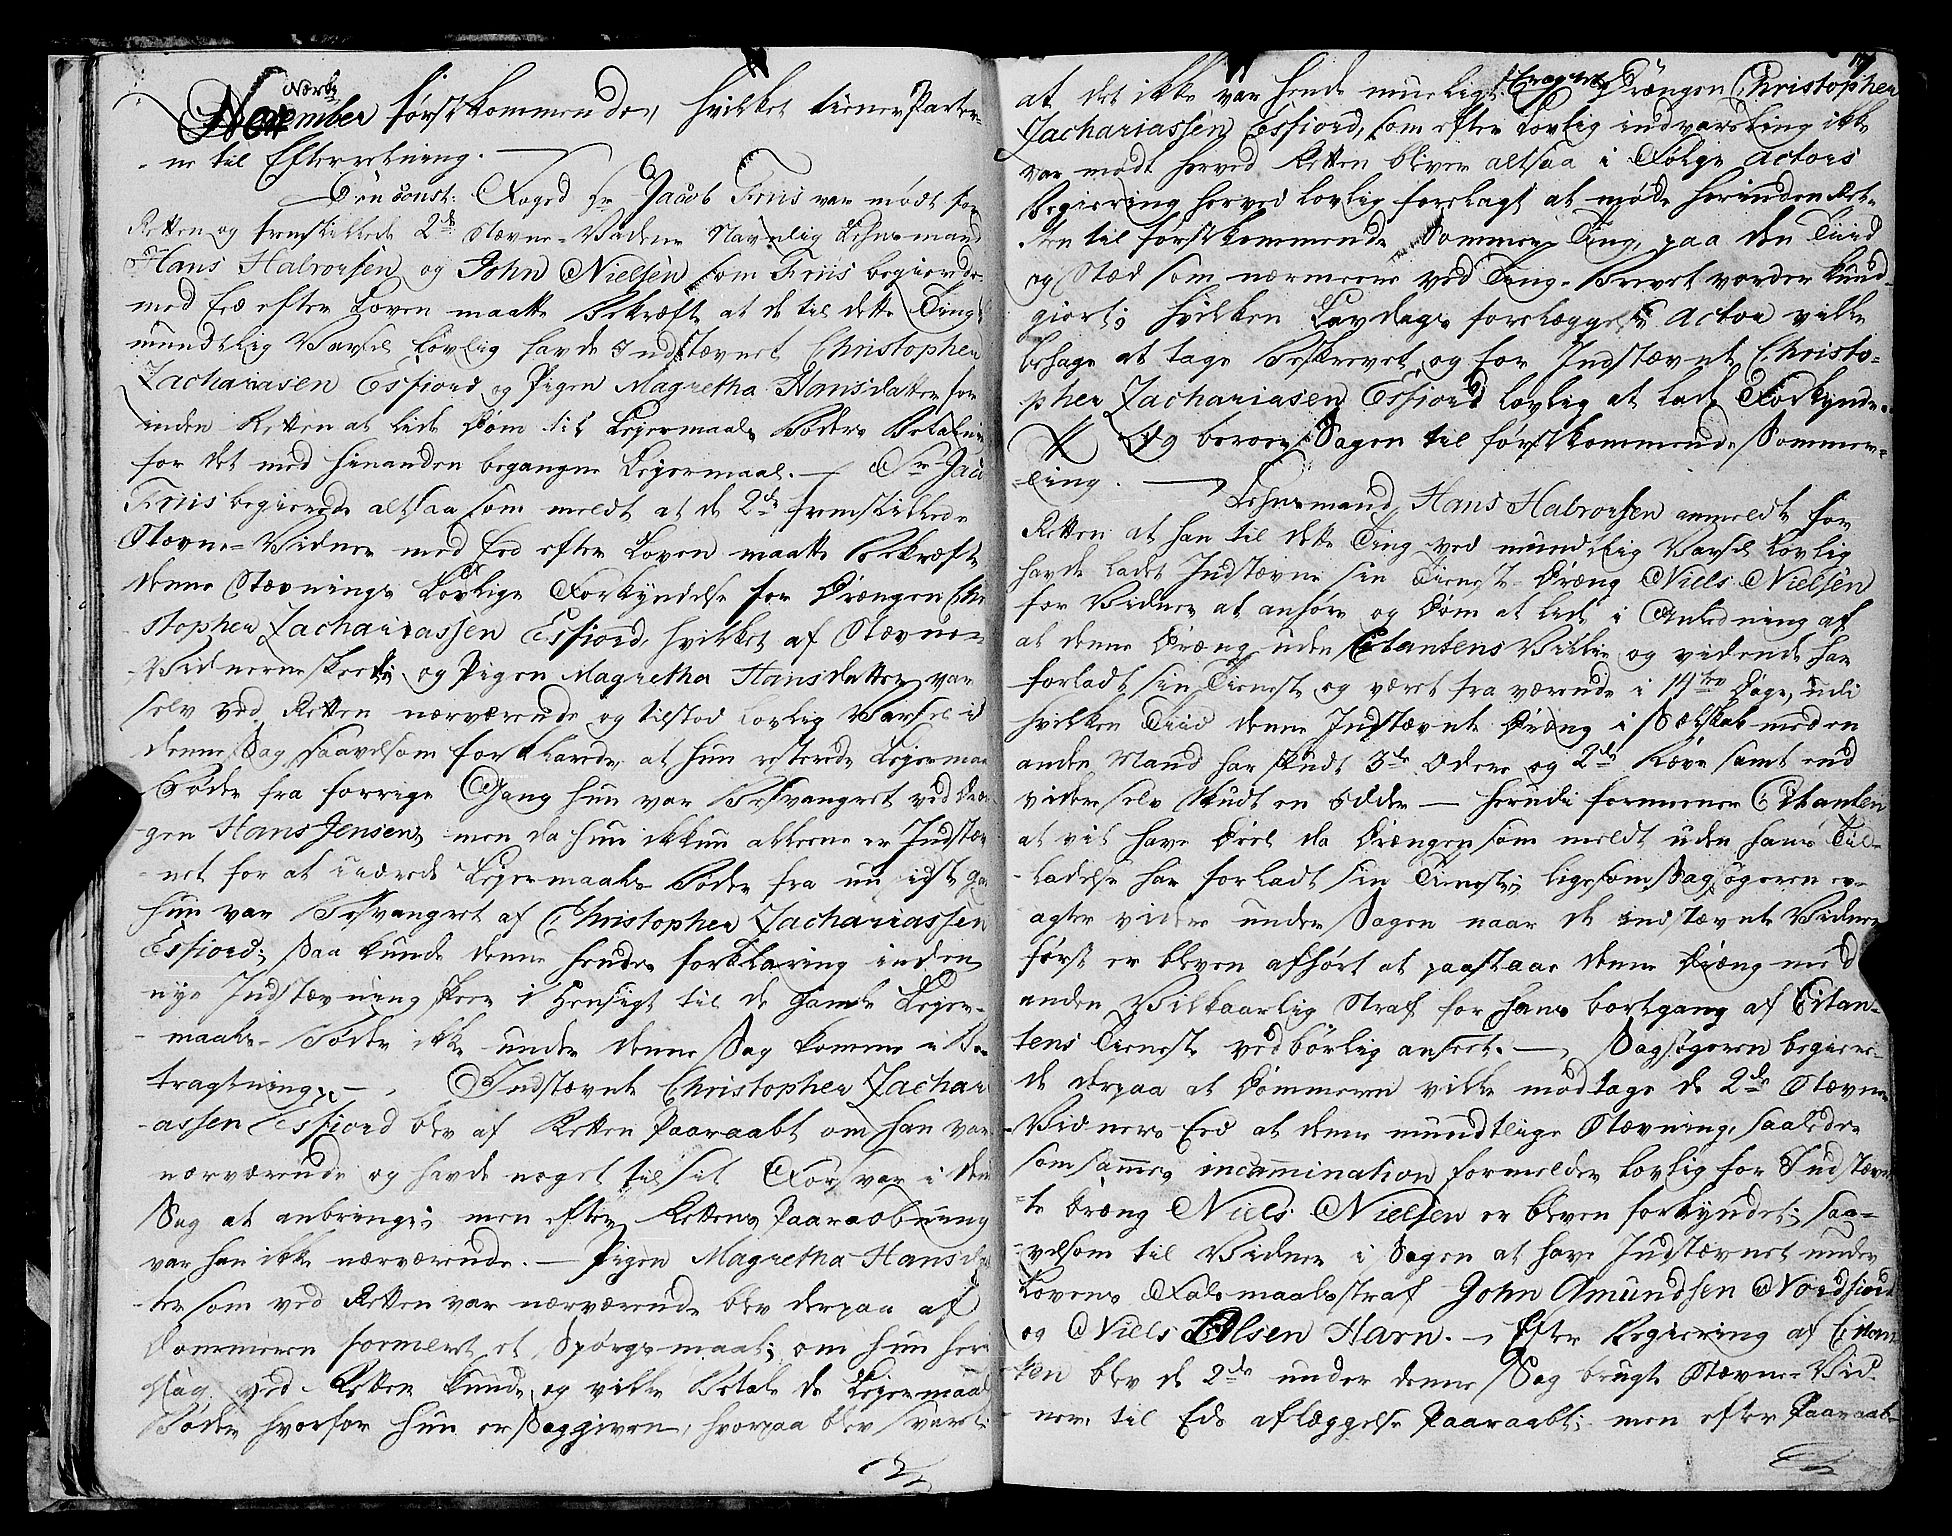 Nærk
November førstkommende, hvilket tiener Parter-
ne til Efterretning. —
Den const: Foged Hr Jacob Friis var mødt for
Retten og fremstillede 2de Stævne-Vidner Navnlig Lehnsmand
Hans Halvorsen og John Nielsen som Friis begierede
med Eed efter Loven maatte Bekræfte at de til dette Ting
mundtlig Varsel lovlig havde Indstævnet Christopher
Zachariasen Esfiord og Pigen Magretha Hansdatter for
inden Retten at lide Dom til Lejermaals Bøders Betaling
for det med hinanden begangne Lejermaal. — Sr Jacob
Friis begierede altsaa som meldt at de 2de fremstillede
Stævne-Vidner med Eed efter Loven maatte Bekræfte
denne Stævnings Lovlige Forkyndelse for Drængen Chri
stopher Zachariassen Esfiord, hvilket af Stævne-
Vidnerne skeede, og Pigen Magretha Hansdatter var
selv ved Retten nærværende og tilstod lovlig Varsel i
denne Sag saavelsom forklarede, at hun resterede Lejermaals
Bøder fra forrige Gang hun var Besvangret ved Dræn
gen Hans Jensen, men da hun ikkun alleene er Indstæv
net for at udrede Lejermaals Bøder fra nu sidste Gang
hun var Besvangret af Christopher Zachariassen
Esfiord; saa kunde denne hendes forklaring inden
nye Indstævning skeer i Hensigt til de gamle Lejer-
maals-Bøder ikke under denne Sag komme i Be-
tragtning. — Indstævnte Christopher Zachari
assen Esfiord blev af Retten Paaraabt om han var
nærværende og havde noget til sit Forsvar i denne
Sag at anbringe; men efter Rettens Paaraabning
var han ikke nærværende. — Pigen Magretha Hansdat
ter som ved Retten var nærværende blev derpaa af
Dommeren formeret et Spørgsmaal; om hun her i
Dag ved Retten kunde og ville Betale de Lejermaals
Bøder hvorfor hun er Saggiven, hvorpaa blev svart:
at det ikke var hende mueligt. Drængen Christopher
Zachariassen Esfiord, som efter Lovlig indvarsling ikke
var mødt herved Retten bliver altsaa i Følge Actors
Begiering herved lovlig forelagt at møde herinden Ret-
ten til førstkommende Sommer Ting, paa den Tiid
og Stæd som nærmere ved Ting-Brevet vorder kund-
giort; hvilken Lavdags forelæggelse Actor ville
behage at tage Beskrevet og for Indstævnte Christo-
pher Zachariasen Esfiord lovlig at lade Forkynde.
Og beroer Sagen til førstkommende Sommer-
ting. —
Lehnsmand Hans Halvorsen anmeldte for
Retten at han til dette Ting ved mundtlig Varsel Lovlig
havde ladet Indstævne sin Tieneste-Dræng Niels Nielsen
for Vidner at anhøre og Dom at lide i Anledning af
at denne Dræng uden Citantens Villie og vidende har
forladt sin Tieneste og været fra værende i 14ten Dage, udi
hvilken Tiid denne Indstævnte Dræng i Selskab med en
anden Mand har skudt 3de Odere og 2de Ræve samt end
videre selv skudt en Odder — herudi formeener Citanten
at vil have Deel da Drængen som meldt uden hans Til-
ladelse har forladt sin Tieneste; ligesom Sagsøgeren er-
agter videre under Sagen naar de indstævnte Vidner
først er bleven afhørt at paastaae denne Dræng med
anden Vilkaarlig Straf for hans bortgang af Citan-
tens Tieneste vedbørlig anseet. — Sagsøgeren begiere-
de derpaa at Dommeren ville modtage de 2de Stævne
Vidners Eed at denne mundtlige Stævning, saaledes
som sammes incammination formelder lovlig for Indstævn
te Dræng Niels Nielsen er bleven forkyndet; saa-
velsom til Vidner i Sagen at have Indstævnet under
Lovens Falsmaals straf John Amundsen Nordfiord
og Niels Olsen Harn. — Efter Begiering af Citan
ten blev de 2de under denne Sag brugte Stævne-Vid
ner, til Eds aflæggelse Paaraabt; men efter Paaraab-